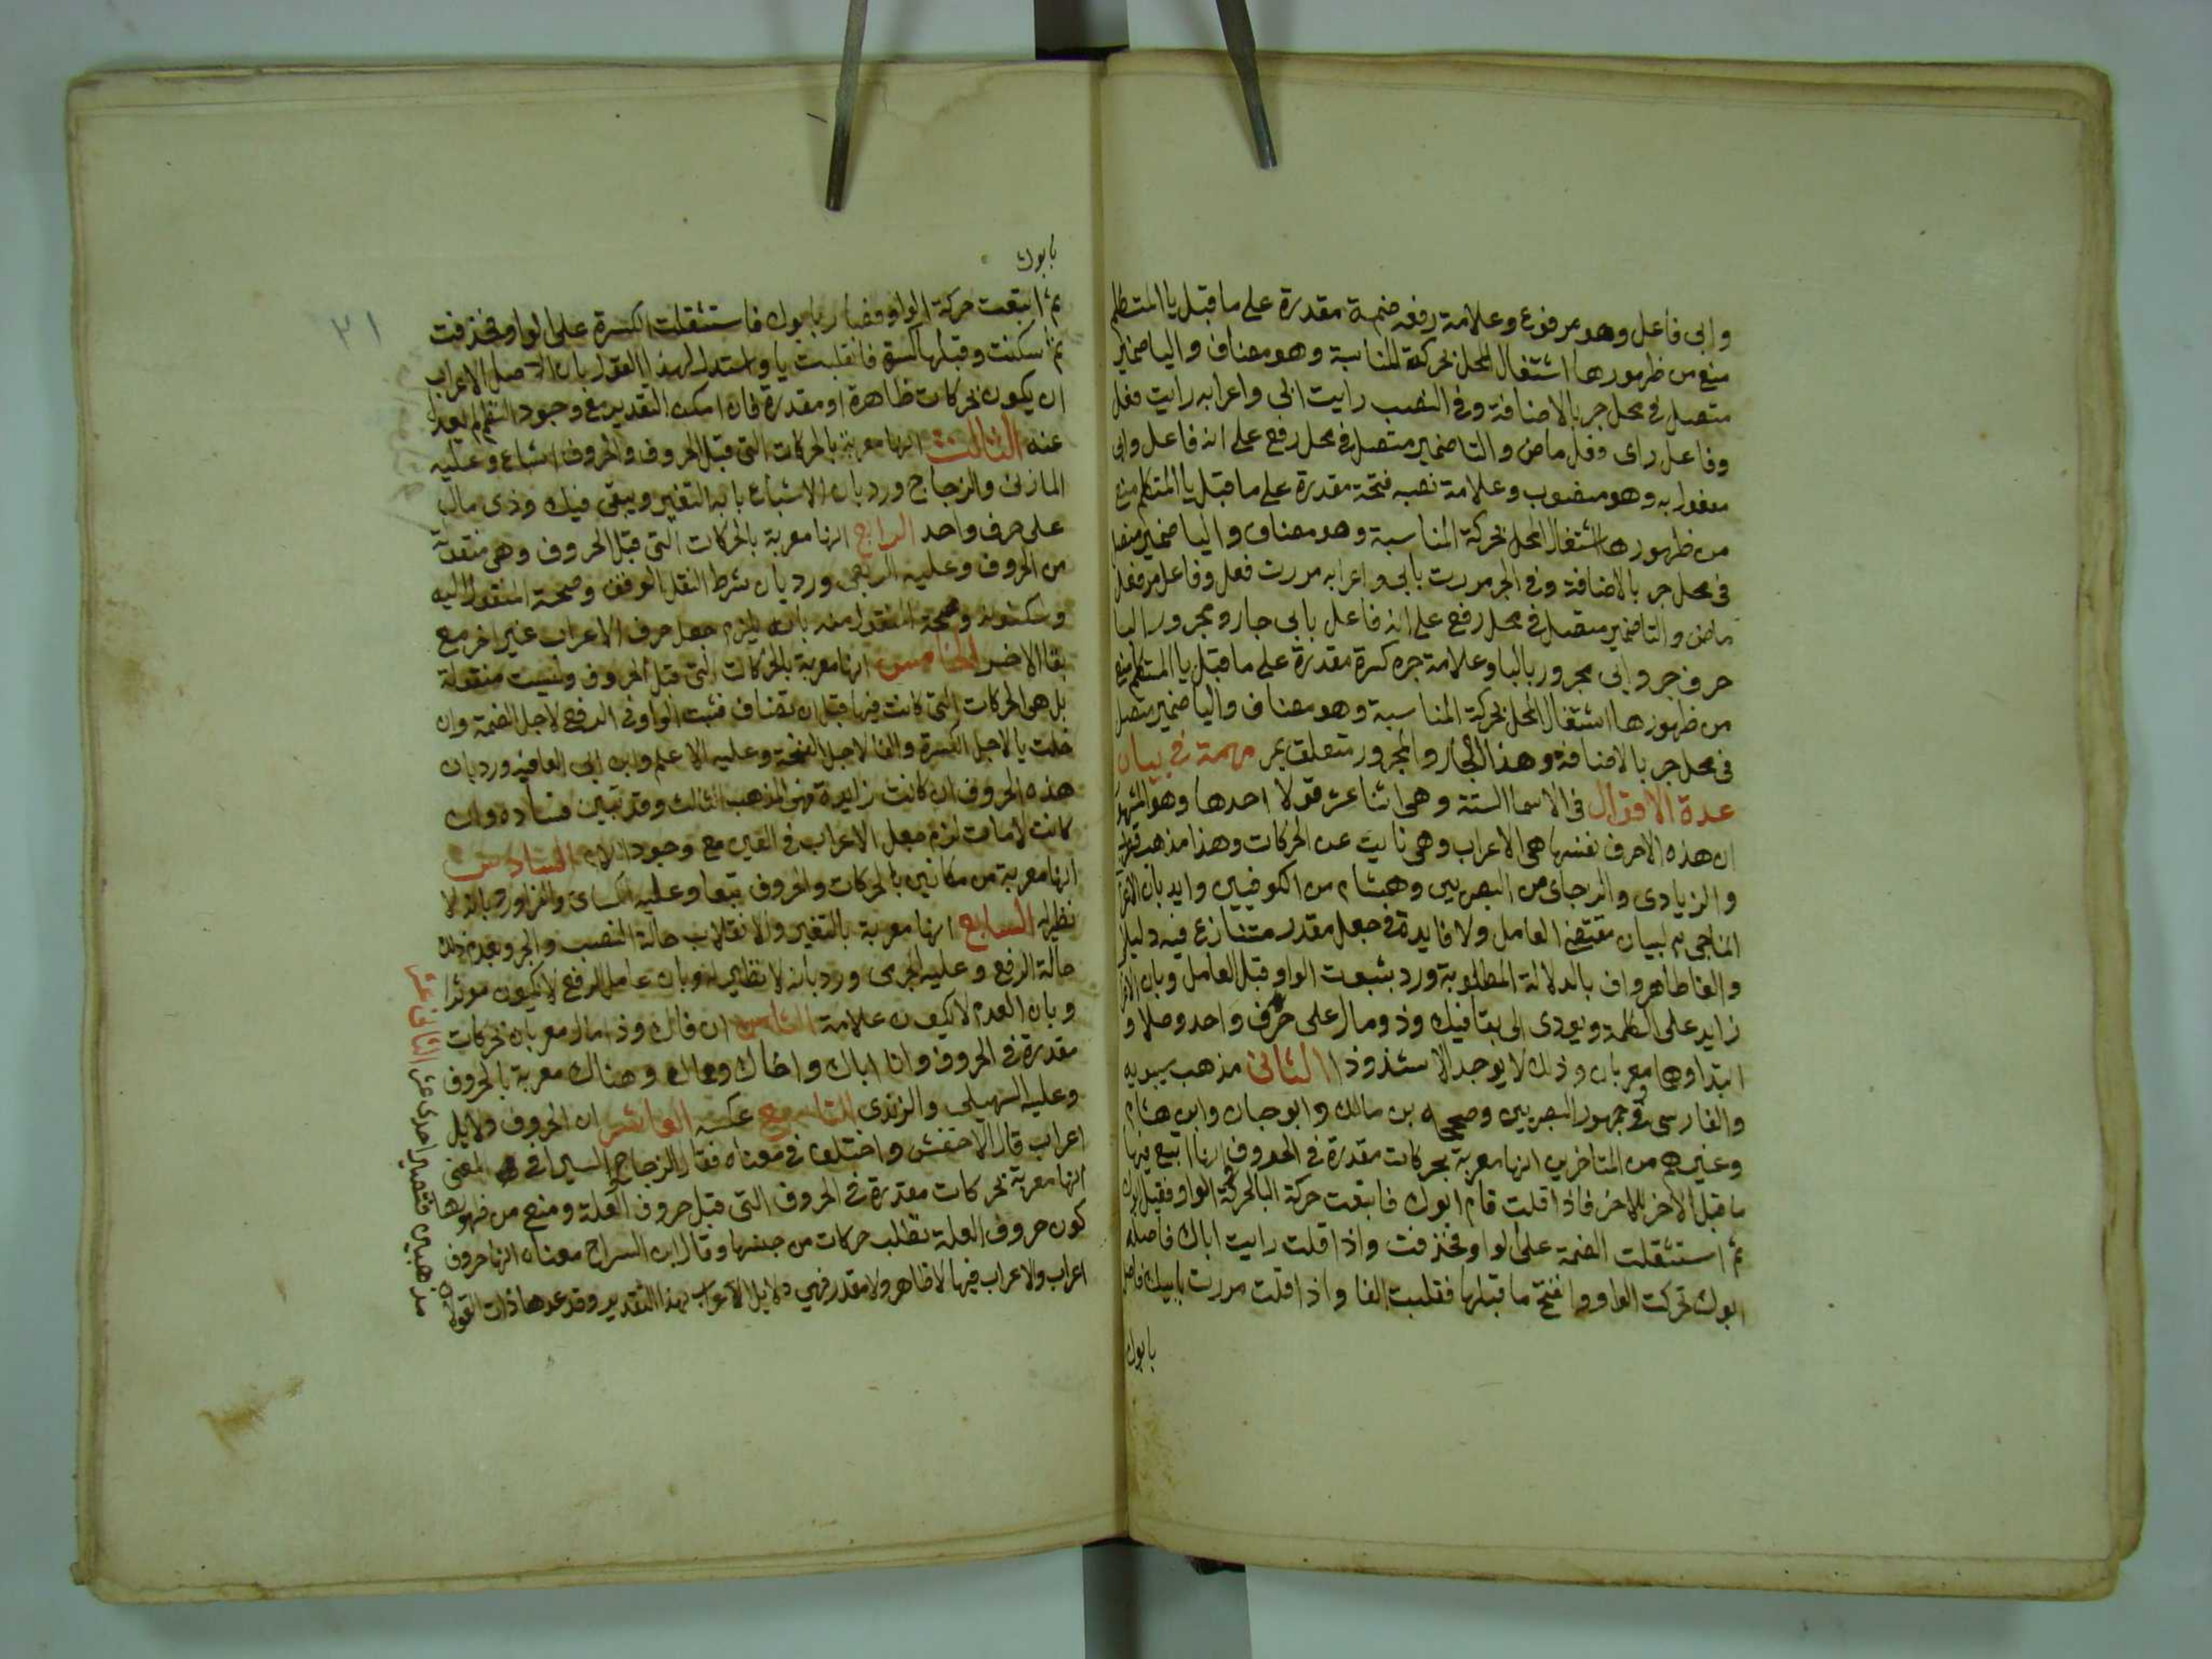 وابى فاعل وهو مرفوع وعلامة رفعه ضمة مقدرة على ما قبل يا المتكلم
منع من ظهورها اشتغال المحل بحركة المناسبة وهو مضاف واليا ضمير
متصل في محل جر بالاضافة وفي النصب رايت ابى واعرابه رايت فعل
وفاعل راى فعل ماض والتا ضمير متصل في محل رفع على انه فاعل وابى
مفعول به وهو منصوب وعلامة نصبه فتحة مقدرة على ما قبل يا المتكلم منع
من ظهورها اشتغال المحل بحركة المناسبة وهو مضاف واليا ضمير متصل
في محل جر بالاضافة وفي الجر مررت بابى واعرابه مررت فعل وفاعل مر فعل
ماض والتا ضمير متصل في محل رفع على انه فاعل بابى جار ومجرور البا
حرف جر وابى مجرور بالبا وعلامة جره كسرة مقدرة على ما قبل يا المتكلم منع
من ظهورها اشتغال المحل بحركة المناسبة وهو مضاف واليا ضمير متصل
في محل جر بالاضافة وهذا الجار والمجرور متعلق بمر مهمة في بيان
عدة الاقوال في الاسما الستة وهى اثنا عشر قولا احدها وهو المشهور
ان هذه الاحرف نفسها هى الاعراب وهى نايبت عن الحركات وهذا مذهب قطرب
والزيادى والزجاجى من البصريين وهشام من الكوفيين وايد بان الاعراب
انما جى به لبيان مقتضى العامل ولا فايدة في جعل مقدر متنازع فيه دليلا
والغا ظاهر واف بالدلالة المطلوبة ورد بثبوت الواو قبل العامل وبان الاعراب
زايد على الكلمة ويودى الى بقا فيك وذو مال على حرف واحد وصلا و
ابتدا وهما معربان وذلك لا يوجد الا شذوذا الثانى مذهب سيبويه
والفارسى وجمهور البصريين وصححه بن مالك وابو حيان وابن هشام
وغيرهم من المتاخرين انها معربة بحركات مقدرة في الحروف وانها اتبع فيها
ما قبل الاخر للاخر فاذا قلت قام ابوك فاتبعت حركة البا لحركة الواو فقيل ابوك
ثم استثقلت الضمة على الواو فحذفت واذا قلت رايت اباك فاصله
ابوك تحركت الواو وانفتح ما قبلها فقلبت الفا واذا قلت مررت بابيك فاصله
بابوك
بابوك
ثم اتبعت حركة الواو فصار بابوك فاستثقلت الكسرة على الواو فحذفت
ثم سكنت وقبلها كسرة فانقلبت يا واستدل لهذا القول بان الاصل الاعراب
ان يكون بحركات ظاهرة او مقدرة فان امكن التقدير مع وجود النظم لم يعدل
عنه الثالث انها معربة بالحركات التى قبل الحروف والحروف اشباع وعليه
المازنى والزجاج ورد بان الاشباع بابه الشعر ويبقى فيك وذى مال
على حرف واحد الرابع انها معربة بالحركات التى قبل الحروف وهى منقولة
من الحروف وعليه الربعى ورد بان شرط النقل الوقف وصحة المنقول اليه
وسكونه وصحة المنقول منه بانه يلزم جعل حرف الاعراب غير اخر مع
بقا الاخر الخامس انها معربة بالحركات التى قبل الحروف وليست منقولة
بل هى الحركات التى كانت فيها قبل ان تضاف فثبت الواو في الرفع لاجل الضمة وان
قلبت يا لاجل الكسرة والفا لاجل الفتحة وعليه الاعلم وابن ابى العافيه ورد بان
هذه الحروف ان كانت زايدة فهى المذهب الثالث وقد تبين فساده وان
كانت لامات لزم جعل الاعراب في العين مع وجود اللام السادس
انها معربة من مكانين بالحركات والحروف تبعا وعليه الكساى والفرا ورد بانه لا
نظير له السابع انها معربة بالتغير والانقلاب حالة النصب والجر وبعدم ذلك
حالة الرفع وعليه الجرمى ورد بانه لا نظير له وبان عامل الرفع لا يكون موثرا
وبان العدم لا يكون علامة الثامن ان فاك وذا مال معربان بحركات
مقدرة في الحروف وان اباك واخاك وحماك وهناك معربة بالحروف
وعليه السهيلى والرندى التاسع عكسه العاشر ان الحروف دلايل
اعراب قال الاخفش واختلف في معناه فقال الزجاج والسيرافى المعنى
انها معربة بحركات مقدرة في الحروف التى قبل حروف العلة ومنع من ظهورها
كون حروف العلة تطلب حركات من جنسها وقال ابن السراج معناه انها حروف
اعراب والاعراب فيها لا ظاهر ولا مقدر فهى دلايل الاعراب بهذا التقدير وقد عد هاذان القولان
مذهبين فتصير احدى عشر الثانى عشر
٢١